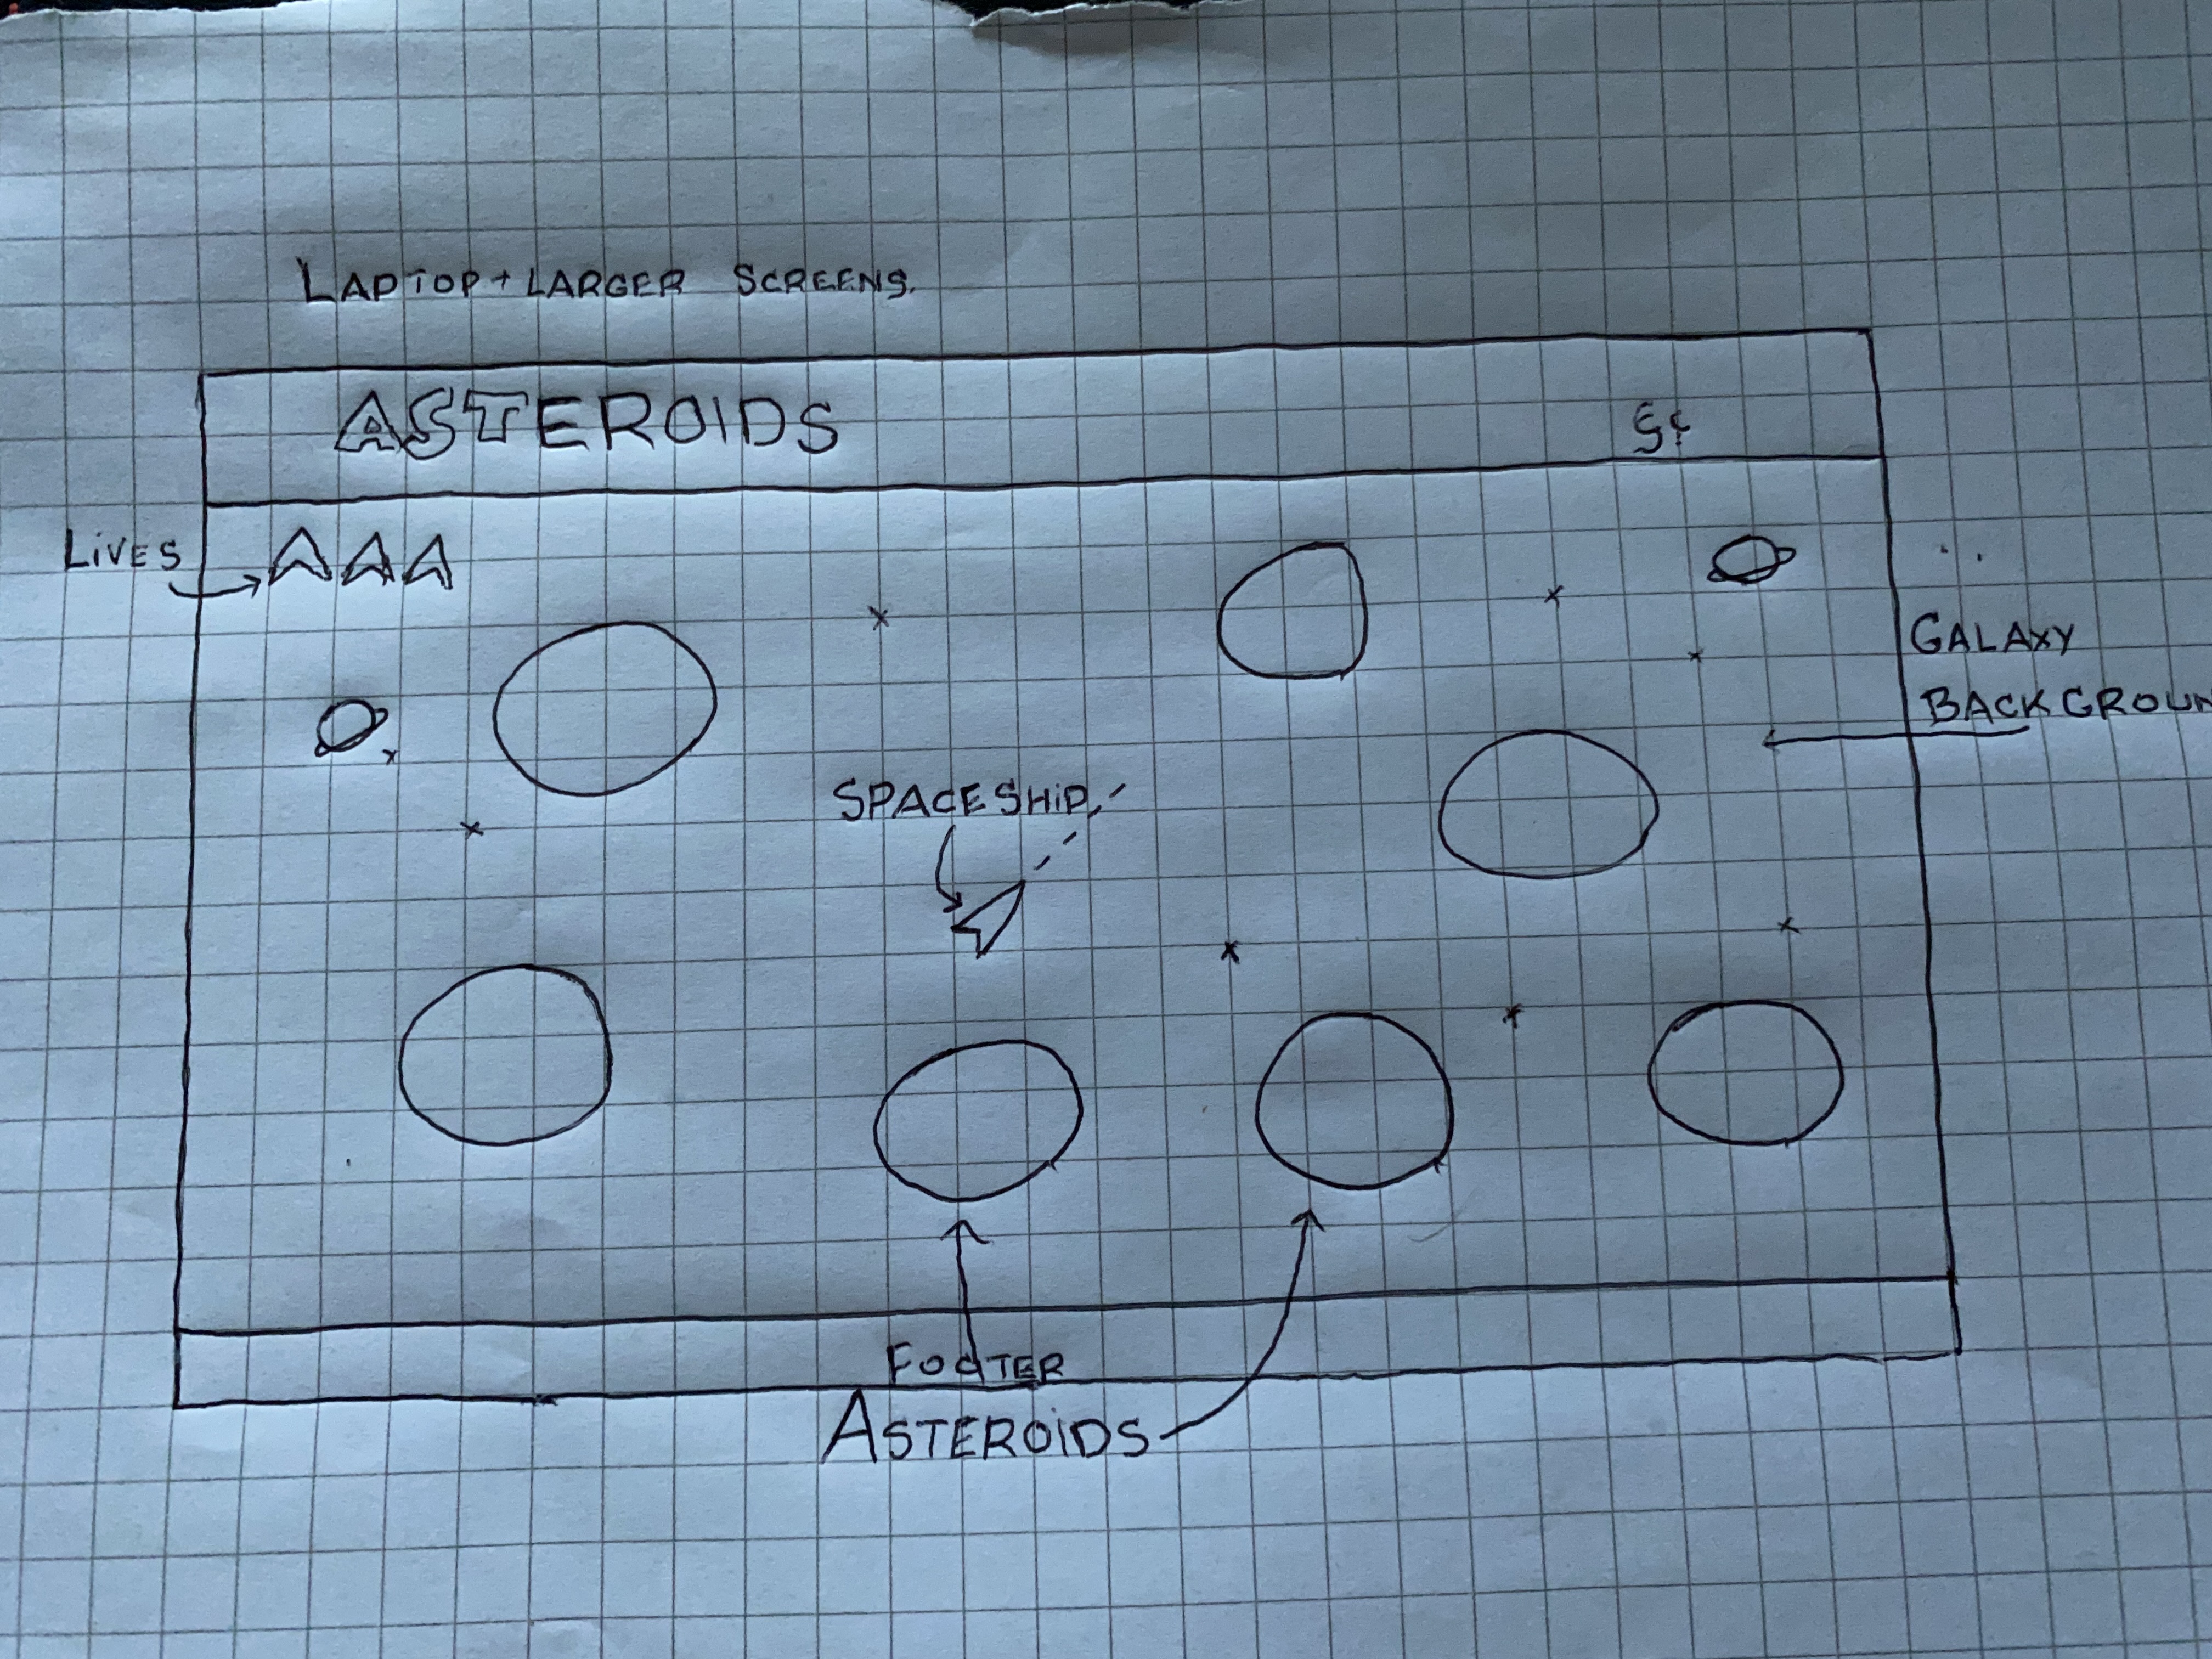 LAPTOP + LARGER SCREENS.
ASTEROIDS
LIVES
GALAXY
SPACESHIP
FOOTER
ASTEROIDS